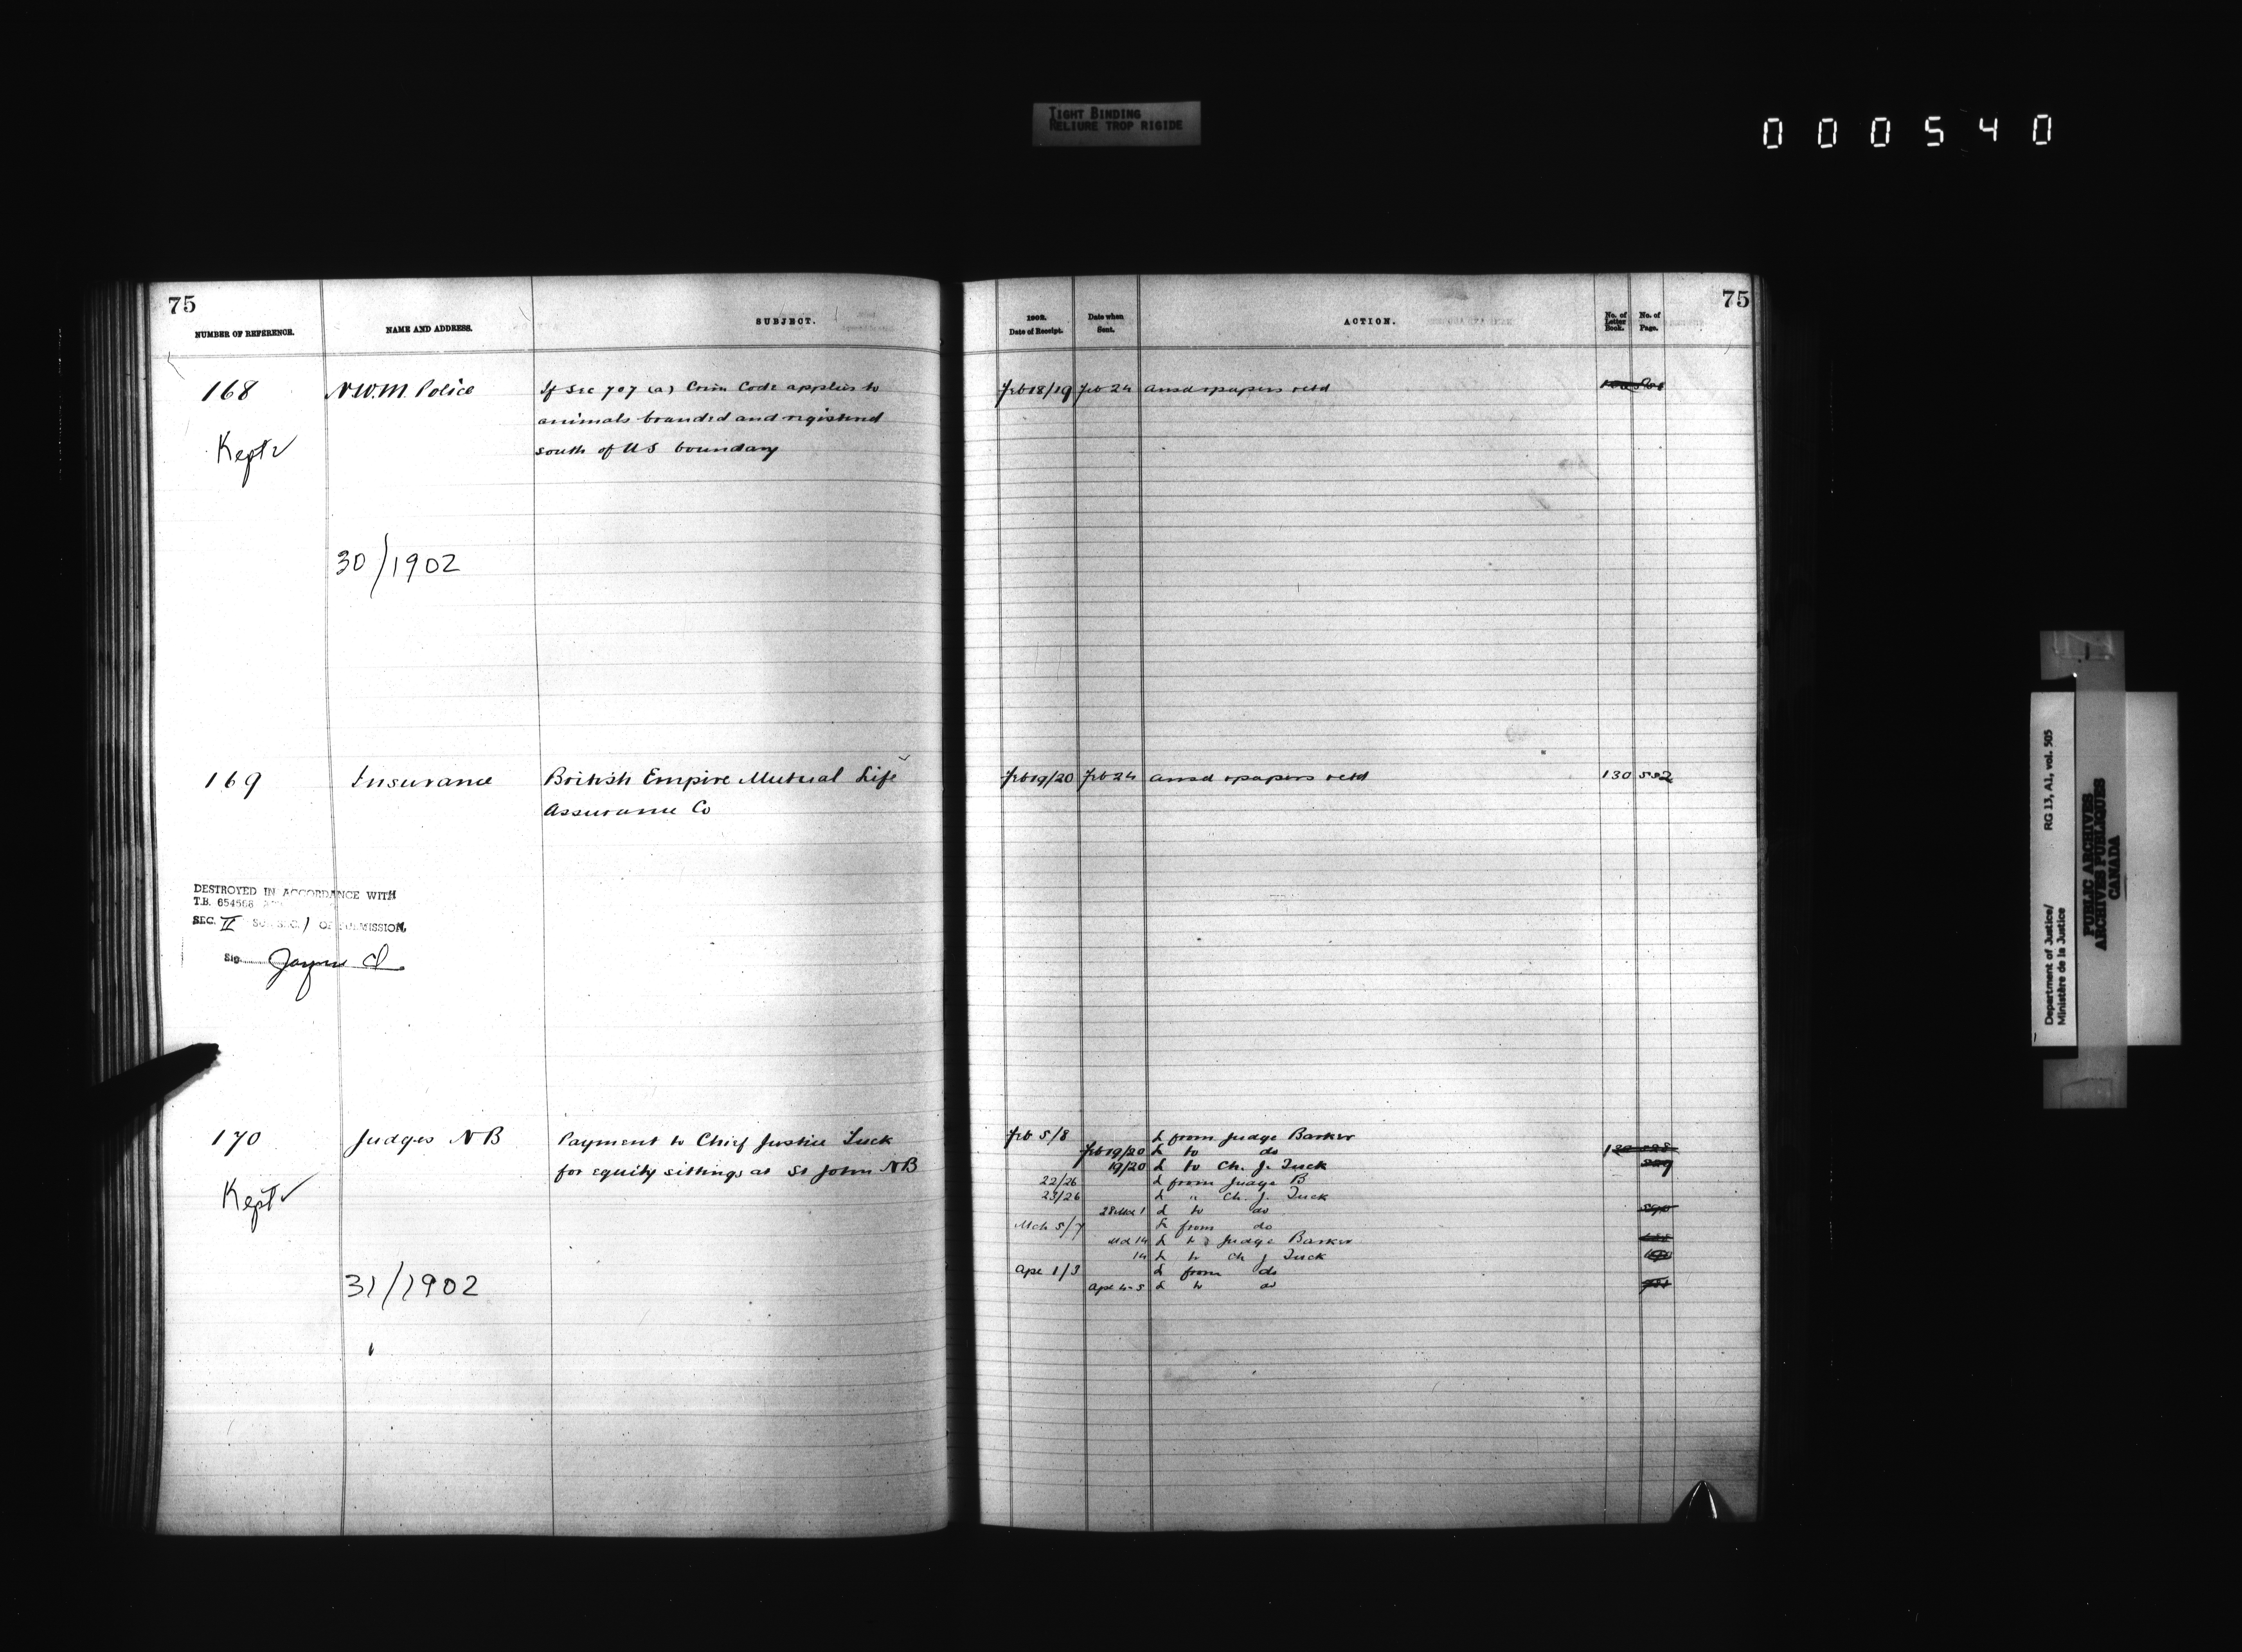 TIGHT BINDING
RELIURE TROP RIGIDE
000540
75
NUMBER OF REFERENCE. NAME AND ADDRESS. SUBJECT.
168 N.W.M. Police If Sec 707 (a) Crim Code applies to
animals branded and registered
south of US boundary
Kept
30/1902
169 Insurance British Empire Mutual Life
Assurance Co
DESTROYED IN ACCORDANCE WITH
T.B. 654568
SEC. II SUB SEC. 1 OF SUBMISSION,
Sig.
170 Judges NB Payment to Chief Justice Tuck
for equity sittings at St John NB
Kept
31/1902
75
1902. Date of Receipt. Date when Sent. ACTION. No. of Letter Book. No. of Page.
Feb 18/19 Feb 24 ansd & papers retd
Feb 19/20 Feb 24 ansd & papers retd 130 552
Feb 5/8 L from Judge Barker
Feb 19/20 L to do
19/20 L to Ch. J. Tuck 529
22/26 L from Judge B
23/26 L " Ch. J. Tuck
28 Mch 1 L to do
Mch 5/7 L from do
Mch 14 L to Judge Barker
14 L to Ch J Tuck
Apl 1/3 L from do
Apl 4-5 L to do
Department of Justice/ RG 13, A1, vol. 505
Ministère de la Justice
PUBLIC ARCHIVES
ARCHIVES PUBLIQUES
CANADA